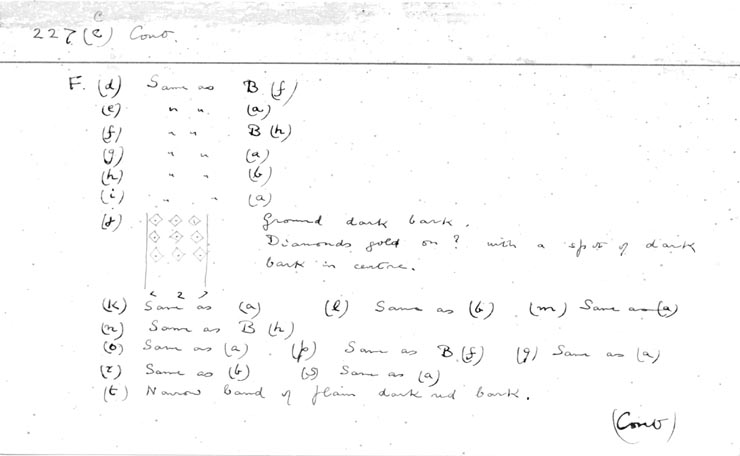 227 (c) Cont.
F. (d) Same as B (f)
(e) " " (a)
(f) " " B (h)
(g) " " (a)
(h) " " (b)
(i) " " (a)
(j) Ground dark bark.
Diamonds gold on ? with a spot of dark
bark in centre.
< 2 >
(k) Same as (a) (l) Same as (b) (m) Same as (a)
(n) Same as B (h)
(o) Same as (a). (p) Same as B (f) (q) Same as (a)
(r) Same as (b) (s) Same as (a)
(t) Narrow band of plain dark red bark.
(Cont)